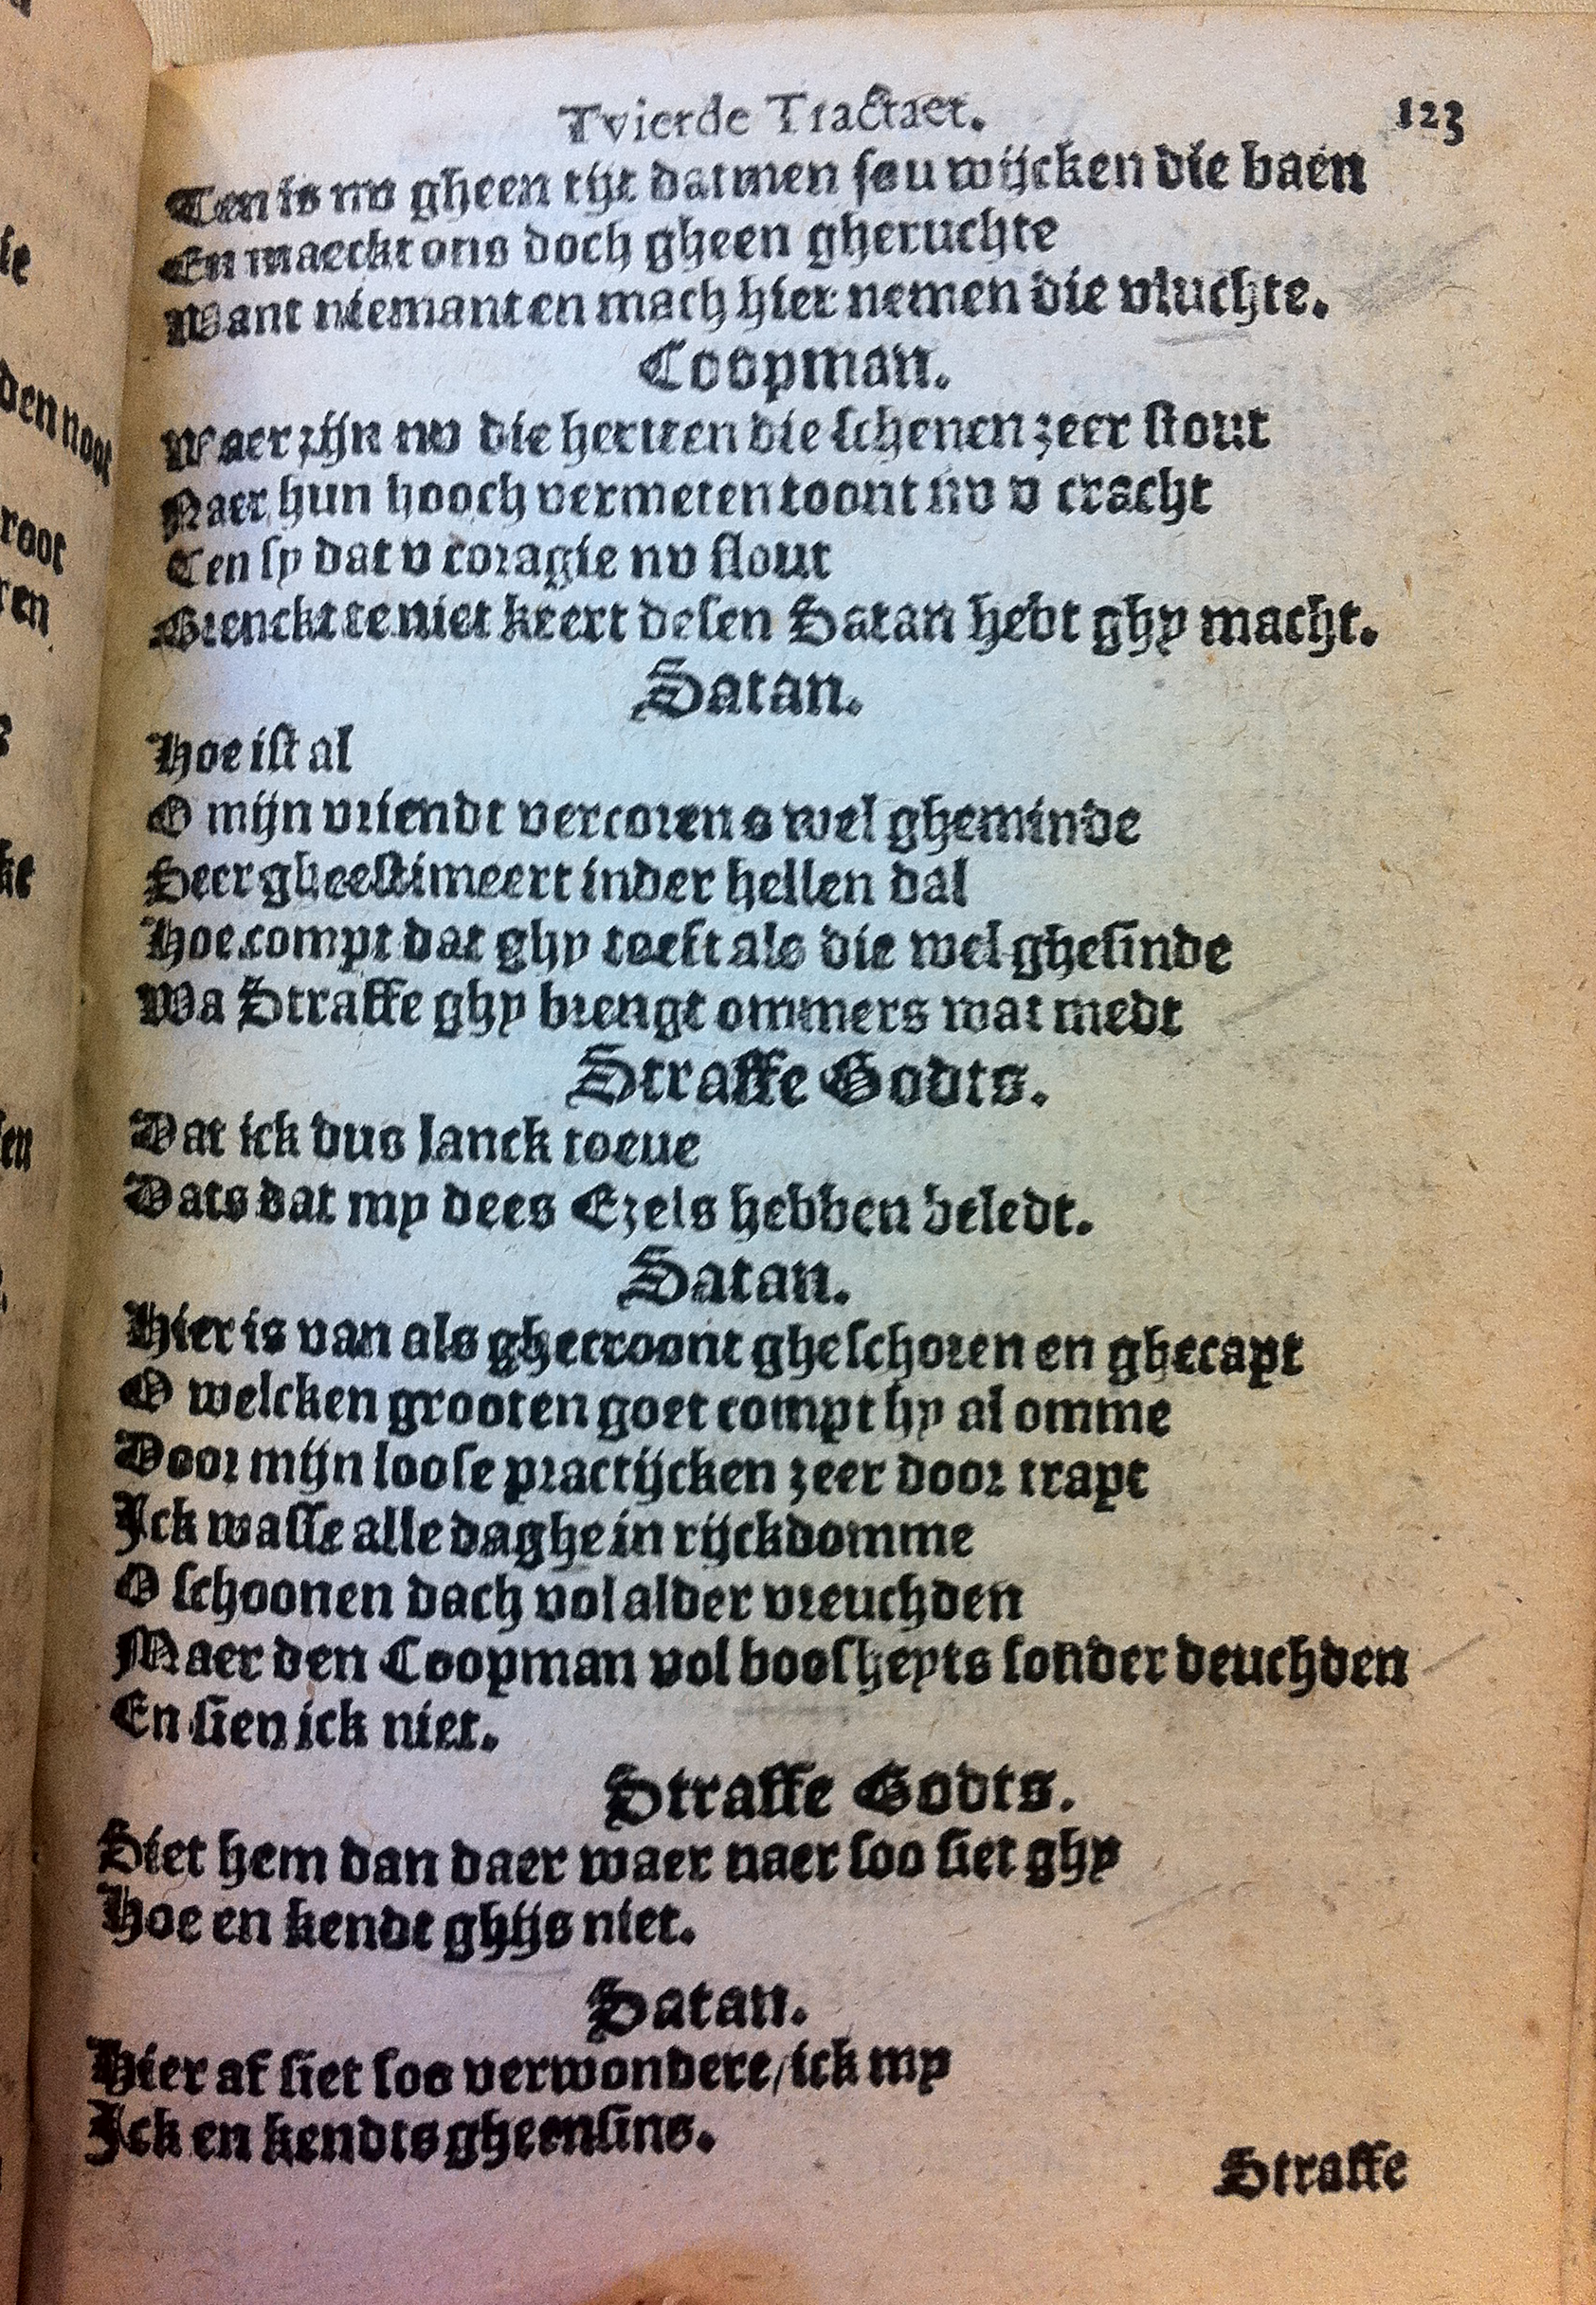 Tvierde Tractaet. 123
Ten is nv gheen tijt datmen sou wijcken die baen
En maeckt ons doch gheen gheruchte
Want niemant en mach hier nemen die vluchte.
Coopman.
Waer zijn nv die hertten die schenen zeer stout
Naer hun hooch vermeten toont nv v cracht
Ten sy dat v coragie nv flout
Brenckt te niet keert desen Satan hebt ghy macht.
Satan.
Hoe ist al
O mijn vriendt vercoren o wel gheminde
Seer gheestimeert inder hellen dal
Hoe compt dat ghy toeft als die wel ghesinde
Wa Straffe ghy brengt ommers wat medt
Straffe Godts.
Dat ick dus lanck toeue
Dats dat my dees Ezels hebben beledt.
Satan.
Hier is van als ghecroont gheschoren en ghecapt
O welcken grooten goet compt hy al omme
Door mijn loose practijcken zeer door trapt
Ick wasse alle daghe in rijckdomme
O schoonen dach vol alder vreuchden
Maer den Coopman vol boosheyts sonder deuchden
En sien ick niet.
Straffe Godts.
Siet hem dan daer waer naer soo siet ghy
Hoe en kendt ghijs niet.
Satan.
Hier af siet soo verwondere/ick my
Ick en kendts gheensins.
Straffe